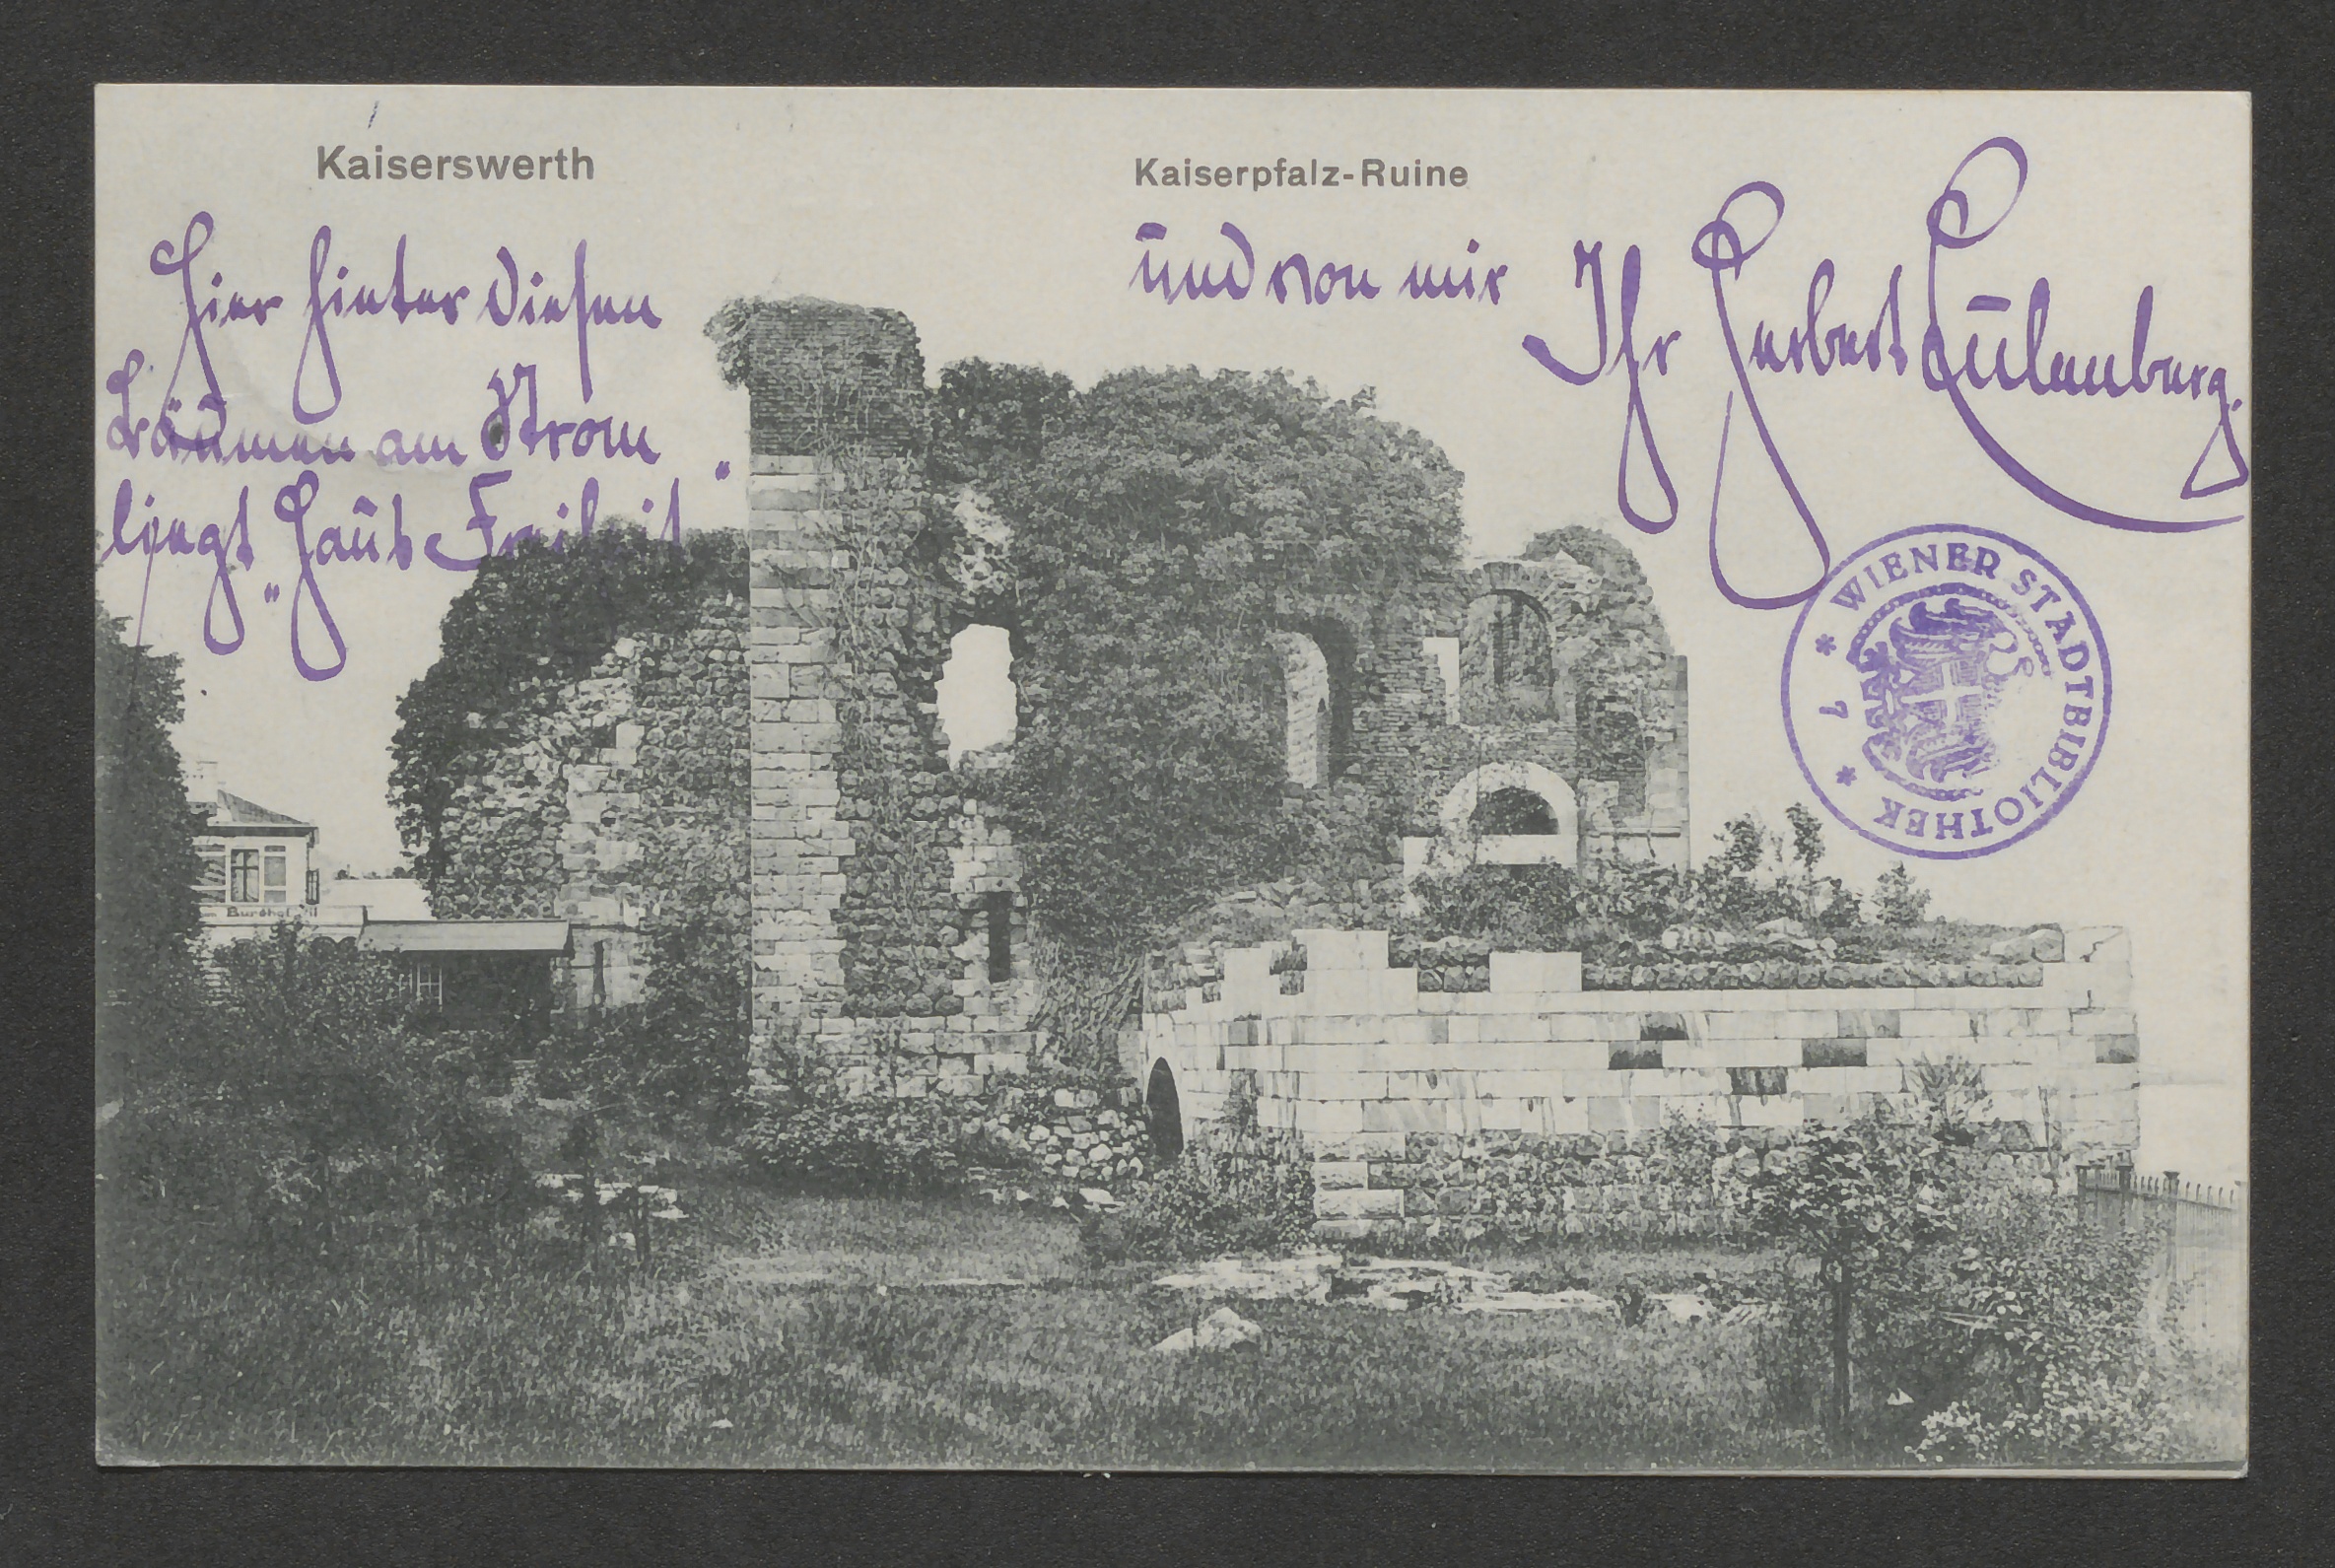 Kaiserswerth
Kaiserpfalz-Ruine
Hier hinter diesen
Bäumen am Strom
liegt „Haus Freiheit"
und von mir Ihr Herbert Eulenberg.
* WIENER STADTBIBLIOTHEK * 7